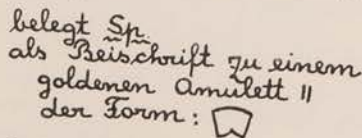 belegt Sp.
als Beischrift zu einem
goldenen Amulett II
der Form: